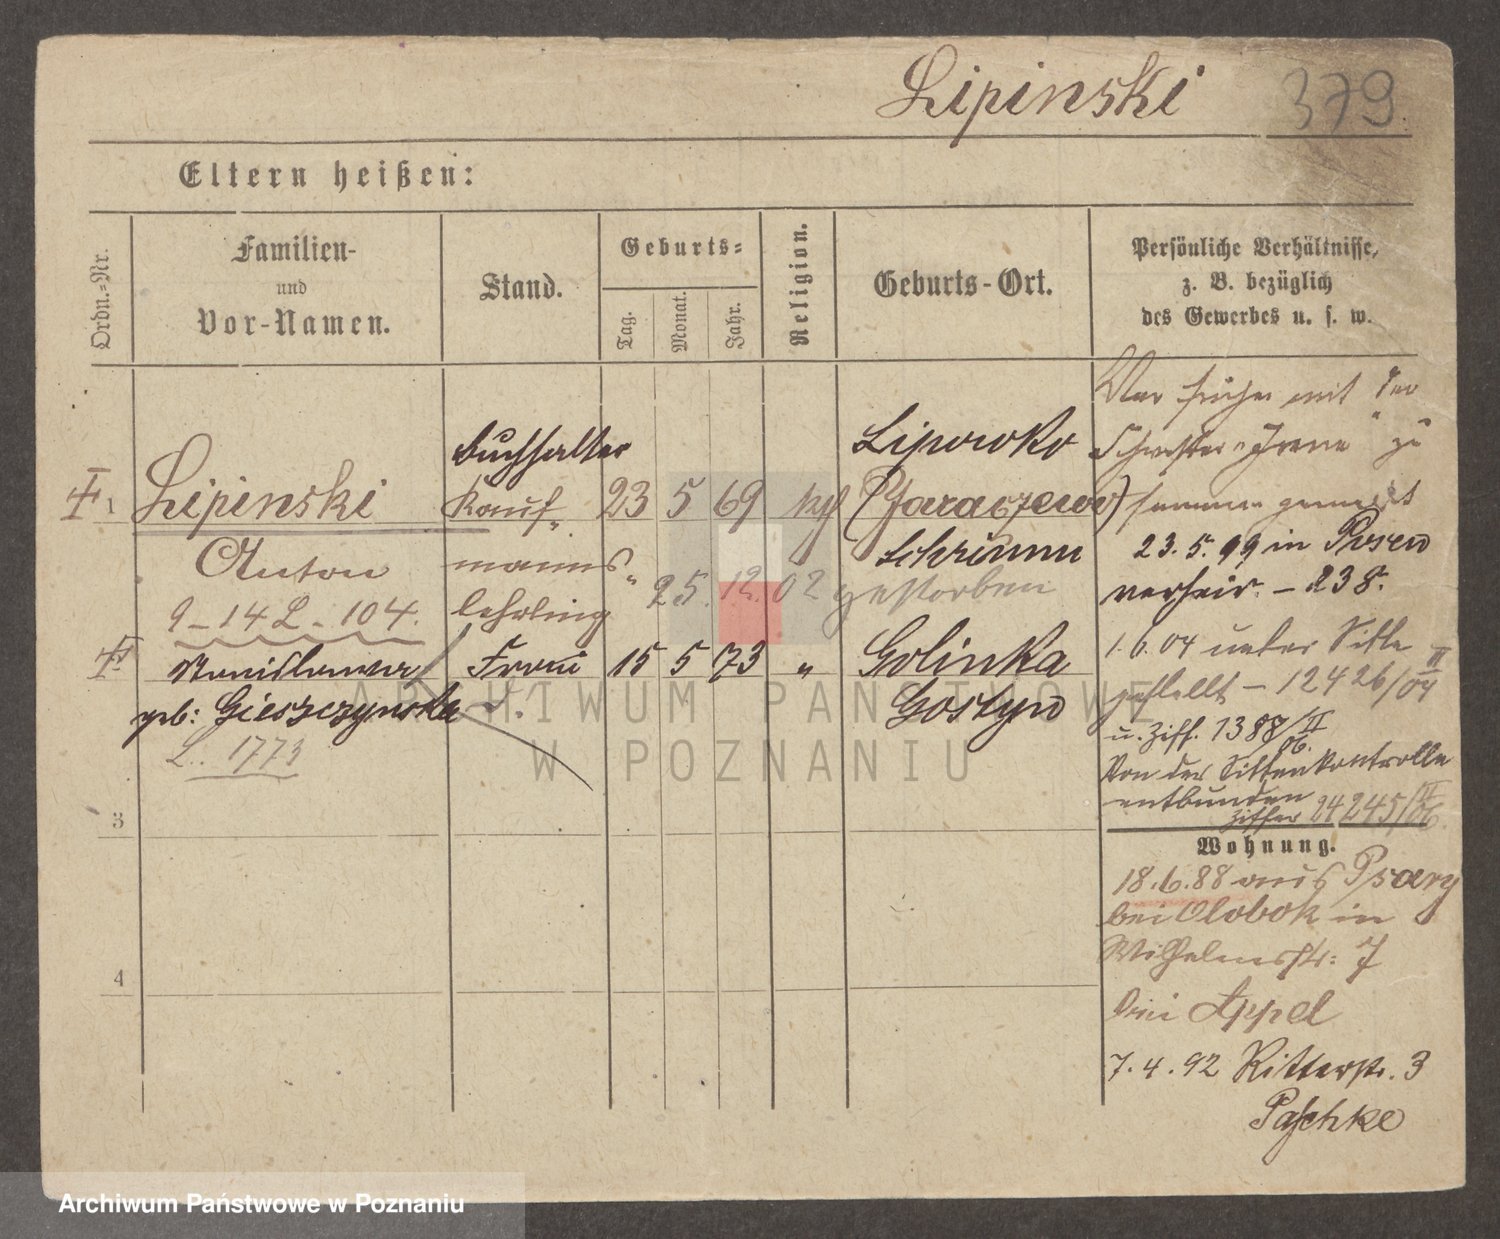 Lipinski 379.
Eltern heißen:
Ordn.-Nr.
Familien-
und
Vor-Namen.
Stand.
Geburts-
Tag.
Monat.
Jahr.
Religion.
Geburts-Ort.
Persönliche Verhältnisse,
z. B. bezüglich
des Gewerbes u. s. w.
1
Lipinski
Anton
9-14 L. 104.
Buchhalter
Kauf-
manns-
lehrling
23 5 69 kth
Lipowko
(Jaraczewo)
Schrimm
25. 12. 02 gestorben
Stanislawa
geb: Gieszczynska
L. 1773
Frau
15 5 73 "
Golinka
Gostyn
3
4
War früher mit der
Schwester "Irene" zu
sammen gemeldet
23.5.99 in Posen
verheir. - 238.
1.6.04 unter Sitte
gestellt - 12426/04 II
u. Ziff. 1388/06. II
Von der Sittenkontrolle
entbunden
Ziffer 24245/06. III
Wohnung.
18.6.88 aus Psary
bei Olobok in
Wilhelmsstr: 7
bei Appel
7.4.92 Ritterstr. 3
Paschke
ARCHIWUM PAŃSTWOWE
W POZNANIU
Archiwum Państwowe w Poznaniu